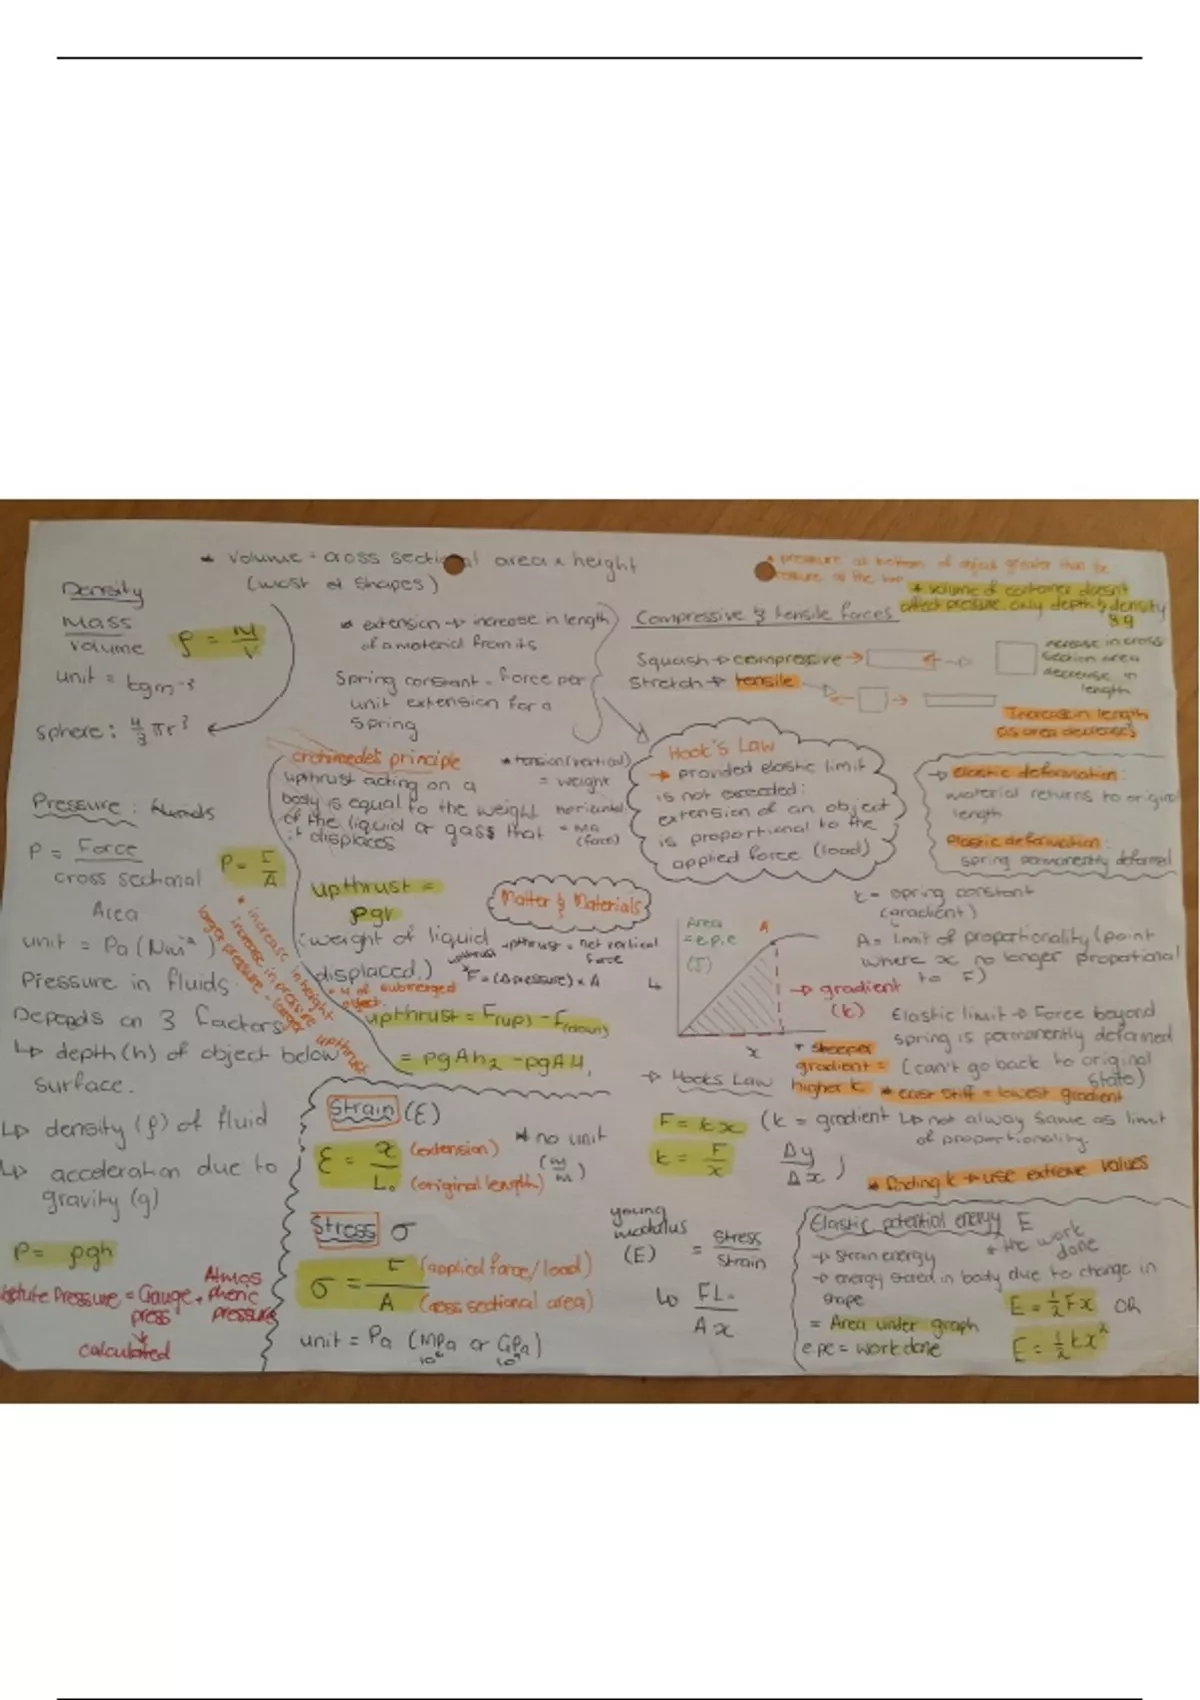 * Volume = cross sectional area x height
(most of shapes)
Density
Mass
Volume
ρ = M
V
unit = kgm⁻³
sphere: 4/3 πr³
* extension → increase in length
of a material from its
Spring constant = force per
unit extension for a
spring
* pressure at bottom of object greater than the
pressure at the top
* volume of container doesn't
affect pressure. only depth & density
& g
Compressive & tensile forces
Squash → compressive →
Stretch → tensile
increase in cross
section area
decrease in
length
Increase in length
as area decreases
Hook's Law
→ provided elastic limit
is not exceeded:
extension of an object
is proportional to the
applied force (load)
→ elastic deformation:
material returns to original
length
Plastic deformation:
spring permanently deformed
Pressure: fluids
P = Force
cross sectional
Area
P = F
A
unit = Pa (Nm⁻²)
Pressure in fluids
Depends on 3 factors
↳ depth (h) of object below
surface.
↳ density (ρ) of fluid
↳ acceleration due to
gravity (g)
P = ρgh
Absolute Pressure = Gauge press + Atmospheric pressure
calculated
* increase in height
increase in pressure
larger pressure = larger upthrust
archimedes principle
upthrust acting on a
body is equal to the weight
of the liquid or gas that
it displaces
* tension (vertical)
= weight
horizontal
= ma
(force)
upthrust =
ρgv
(weight of liquid
displaced.)
Matter & Materials
upthrust = net vertical
force
upthrust
F = (Δpressure) x A
= v of submerged
object.
upthrust = F(up) - F(down)
= ρgAh₂ - ρgAh₁
Area
= e.p.e
(J)
A
x
→ gradient
(k)
* steeper
gradient =
higher k
k = spring constant
(gradient)
A = limit of proportionality (point
where x no longer proportional
to F)
Elastic limit → Force beyond
spring is permanently deformed
(can't go back to original
state)
* least stiff = lowest gradient
↳ not always same as limit
of proportionality.
→ Hooks Law
F = kx
k = F
x
(k = gradient
Δy
Δx )
* finding k → use extreme values
Strain (ε)
ε = x (extension)
L₀ (original length)
* no unit
(m/m)
Stress σ
σ = F (applied force/load)
A (cross sectional area)
unit = Pa (MPa or GPa)
10⁶ 10⁹
young
modulus
(E) = stress
strain
↳ FL₀
Ax
Elastic potential energy E
→ strain energy
* the work
done
→ energy stored in body due to change in
shape
= Area under graph
epe = work done
E = ½Fx OR
E = ½kx²